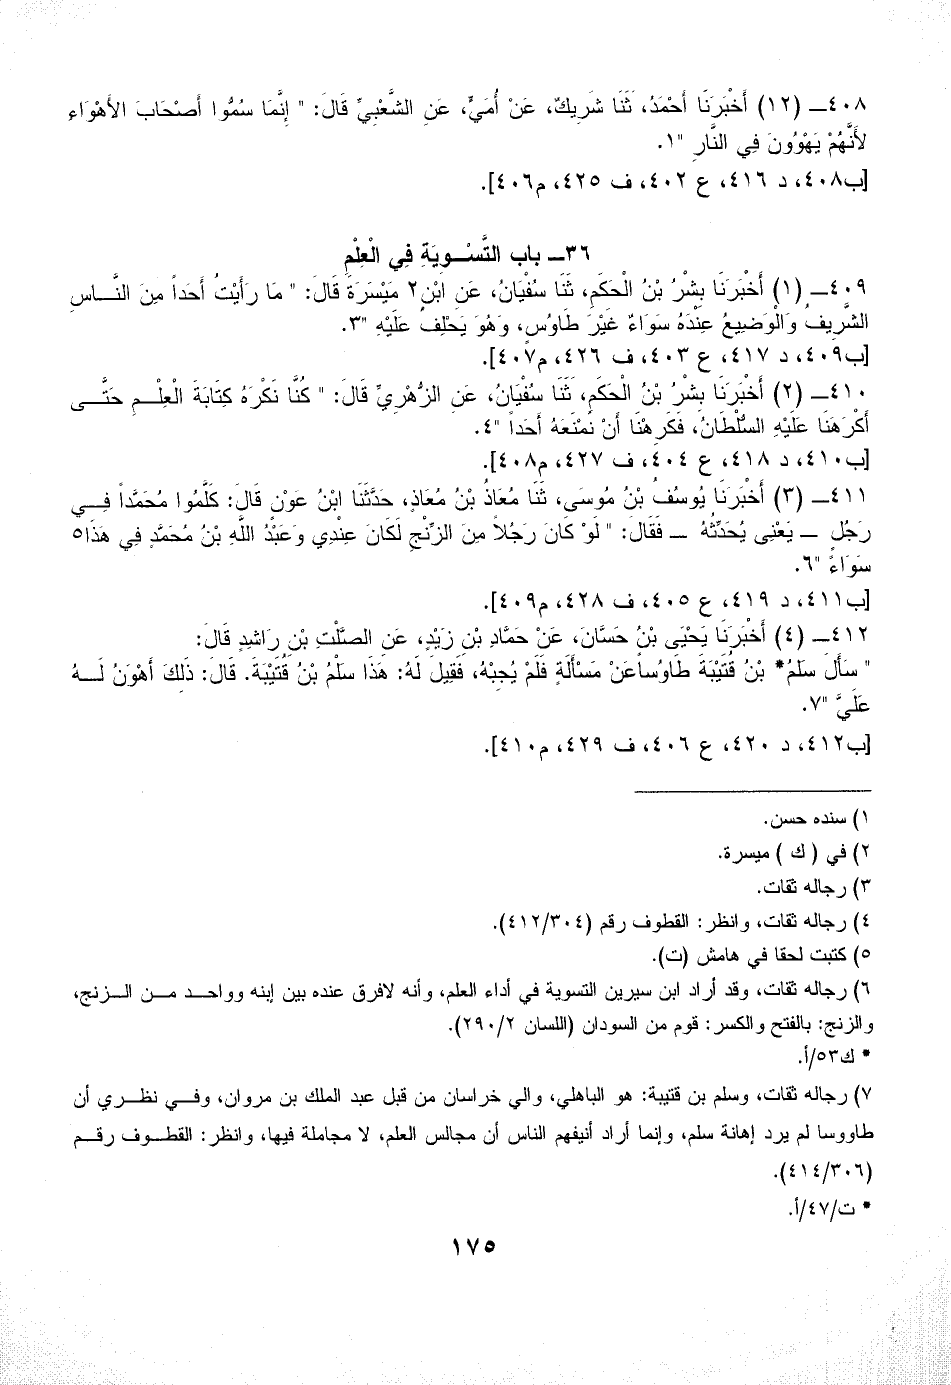 ٤٠٨ــ (١٢) أَخْبَرَنَا أَحْمَدُ، ثَنَا شَرِيكٌ، عَنْ أُمَيٍّ، عَنِ الشَّعْبِيِّ قَالَ: " إِنَّمَا سُمُّوا أَصْحَابَ الأَهْوَاءِ
لأَنَّهُمْ يَهْوُونَ فِي النَّارِ "١.
[ب٤٠٨، د ٤١٦، ع ٤٠٢، ف ٤٢٥، م٤٠٦].
٣٦ــ باب التَّسْوِيَةِ فِي الْعِلْمِ
٤٠٩ــ (١) أَخْبَرَنَا بِشْرُ بْنُ الْحَكَمِ، ثَنَا سُفْيَانُ، عَنِ ابْنِ٢ مَيْسَرَةَ قَالَ: " مَا رَأَيْتُ أَحَداً مِنَ النَّاسِ
الشَّرِيفُ وَالْوَضِيعُ عِنْدَهُ سَوَاءٌ غَيْرَ طَاوُسٍ، وَهُوَ يَحْلِفُ عَلَيْهِ "٣.
[ب٤٠٩، د ٤١٧، ع ٤٠٣، ف ٤٢٦، م٤٠٧].
٤١٠ــ (٢) أَخْبَرَنَا بِشْرُ بْنُ الْحَكَمِ، ثَنَا سُفْيَانُ، عَنِ الزُّهْرِيِّ قَالَ: " كُنَّا نَكْرَهُ كِتَابَةَ الْعِلْمِ حَتَّى
أَكْرَهَنَا عَلَيْهِ السُّلْطَانُ، فَكَرِهْنَا أَنْ نَمْنَعَهُ أَحَداً "٤.
[ب٤١٠، د ٤١٨، ع ٤٠٤، ف ٤٢٧، م٤٠٨].
٤١١ــ (٣) أَخْبَرَنَا يُوسُفُ بْنُ مُوسَى، ثَنَا مُعَاذُ بْنُ مُعَاذٍ، حَدَّثَنَا ابْنُ عَوْنٍ قَالَ: كَلَّمُوا مُحَمَّداً فِي
رَجُلٍ ــ يَعْنِى يُحَدِّثُهُ ــ فَقَالَ: " لَوْ كَانَ رَجُلاً مِنَ الزِّنْجِ لَكَانَ عِنْدِي وَعَبْدُ اللَّهِ بْنُ مُحَمَّدٍ فِي هَذَا٥
سَوَاءً "٦.
[ب٤١١، د ٤١٩، ع ٤٠٥، ف ٤٢٨، م٤٠٩].
٤١٢ــ (٤) أَخْبَرَنَا يَحْيَى بْنُ حَسَّانَ، عَنْ حَمَّادِ بْنِ زَيْدٍ، عَنِ الصَّلْتِ بْنِ رَاشِدٍ قَالَ:
" سَأَلَ سَلْمُ* بْنُ قُتَيْبَةَ طَاوُساً عَنْ مَسْأَلَةٍ فَلَمْ يُجِبْهُ، فَقِيلَ لَهُ: هَذَا سَلْمُ بْنُ قُتَيْبَةَ. قَالَ: ذَلِكَ أَهْوَنُ لَهُ
عَلَيَّ "٧.
[ب٤١٢، د ٤٢٠، ع ٤٠٦، ف ٤٢٩، م٤١٠].
١) سنده حسن.
٢) في ( ك ) ميسرة.
٣) رجاله ثقات.
٤) رجاله ثقات، وانظر: القطوف رقم (٤١٢/٣٠٤).
٥) كتبت لحقا في هامش (ت).
٦) رجاله ثقات، وقد أراد ابن سيرين التسوية في أداء العلم، وأنه لافرق عنده بين إبنه وواحد من الزنج،
والزنج: بالفتح والكسر: قوم من السودان (اللسان ٢٩٠/٢).
* ك٥٣/أ.
٧) رجاله ثقات، وسلم بن قتيبة: هو الباهلي، والي خراسان من قبل عبد الملك بن مروان، وفي نظري أن
طاووسا لم يرد إهانة سلم، وإنما أراد أنيفهم الناس أن مجالس العلم، لا مجاملة فيها، وانظر: القطوف رقم
(٤١٤/٣٠٦).
* ت/٤٧/أ.
١٧٥